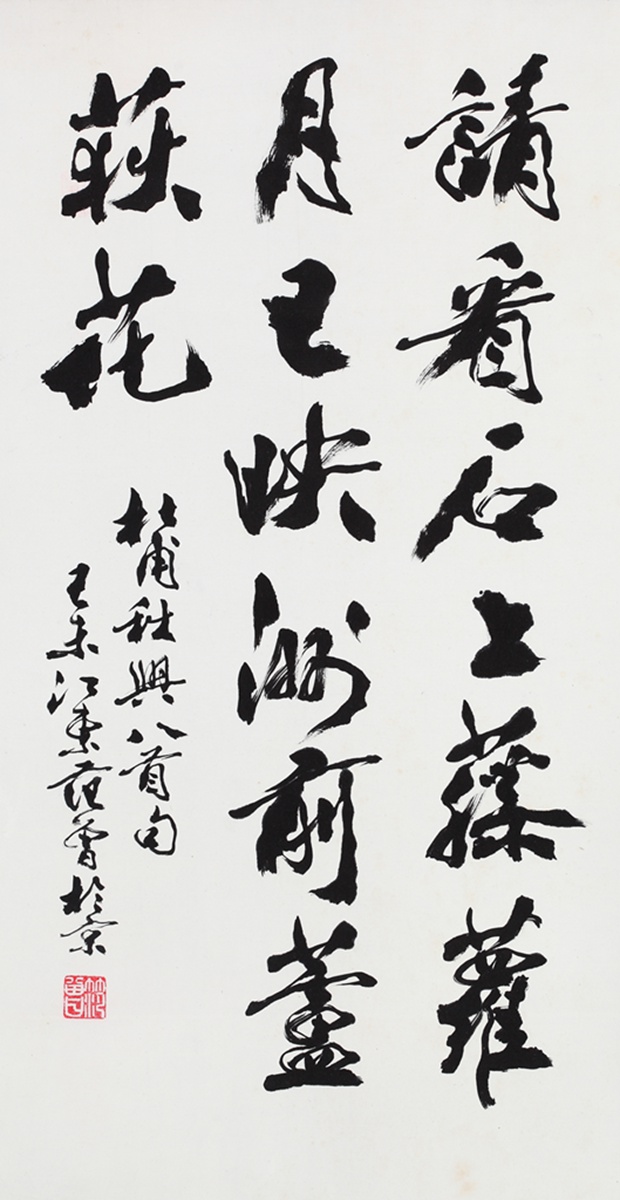 請看石上藤蘿
月已映洲前蘆
荻花
杜甫秋興八首句
己未江東范曾於京
范曾